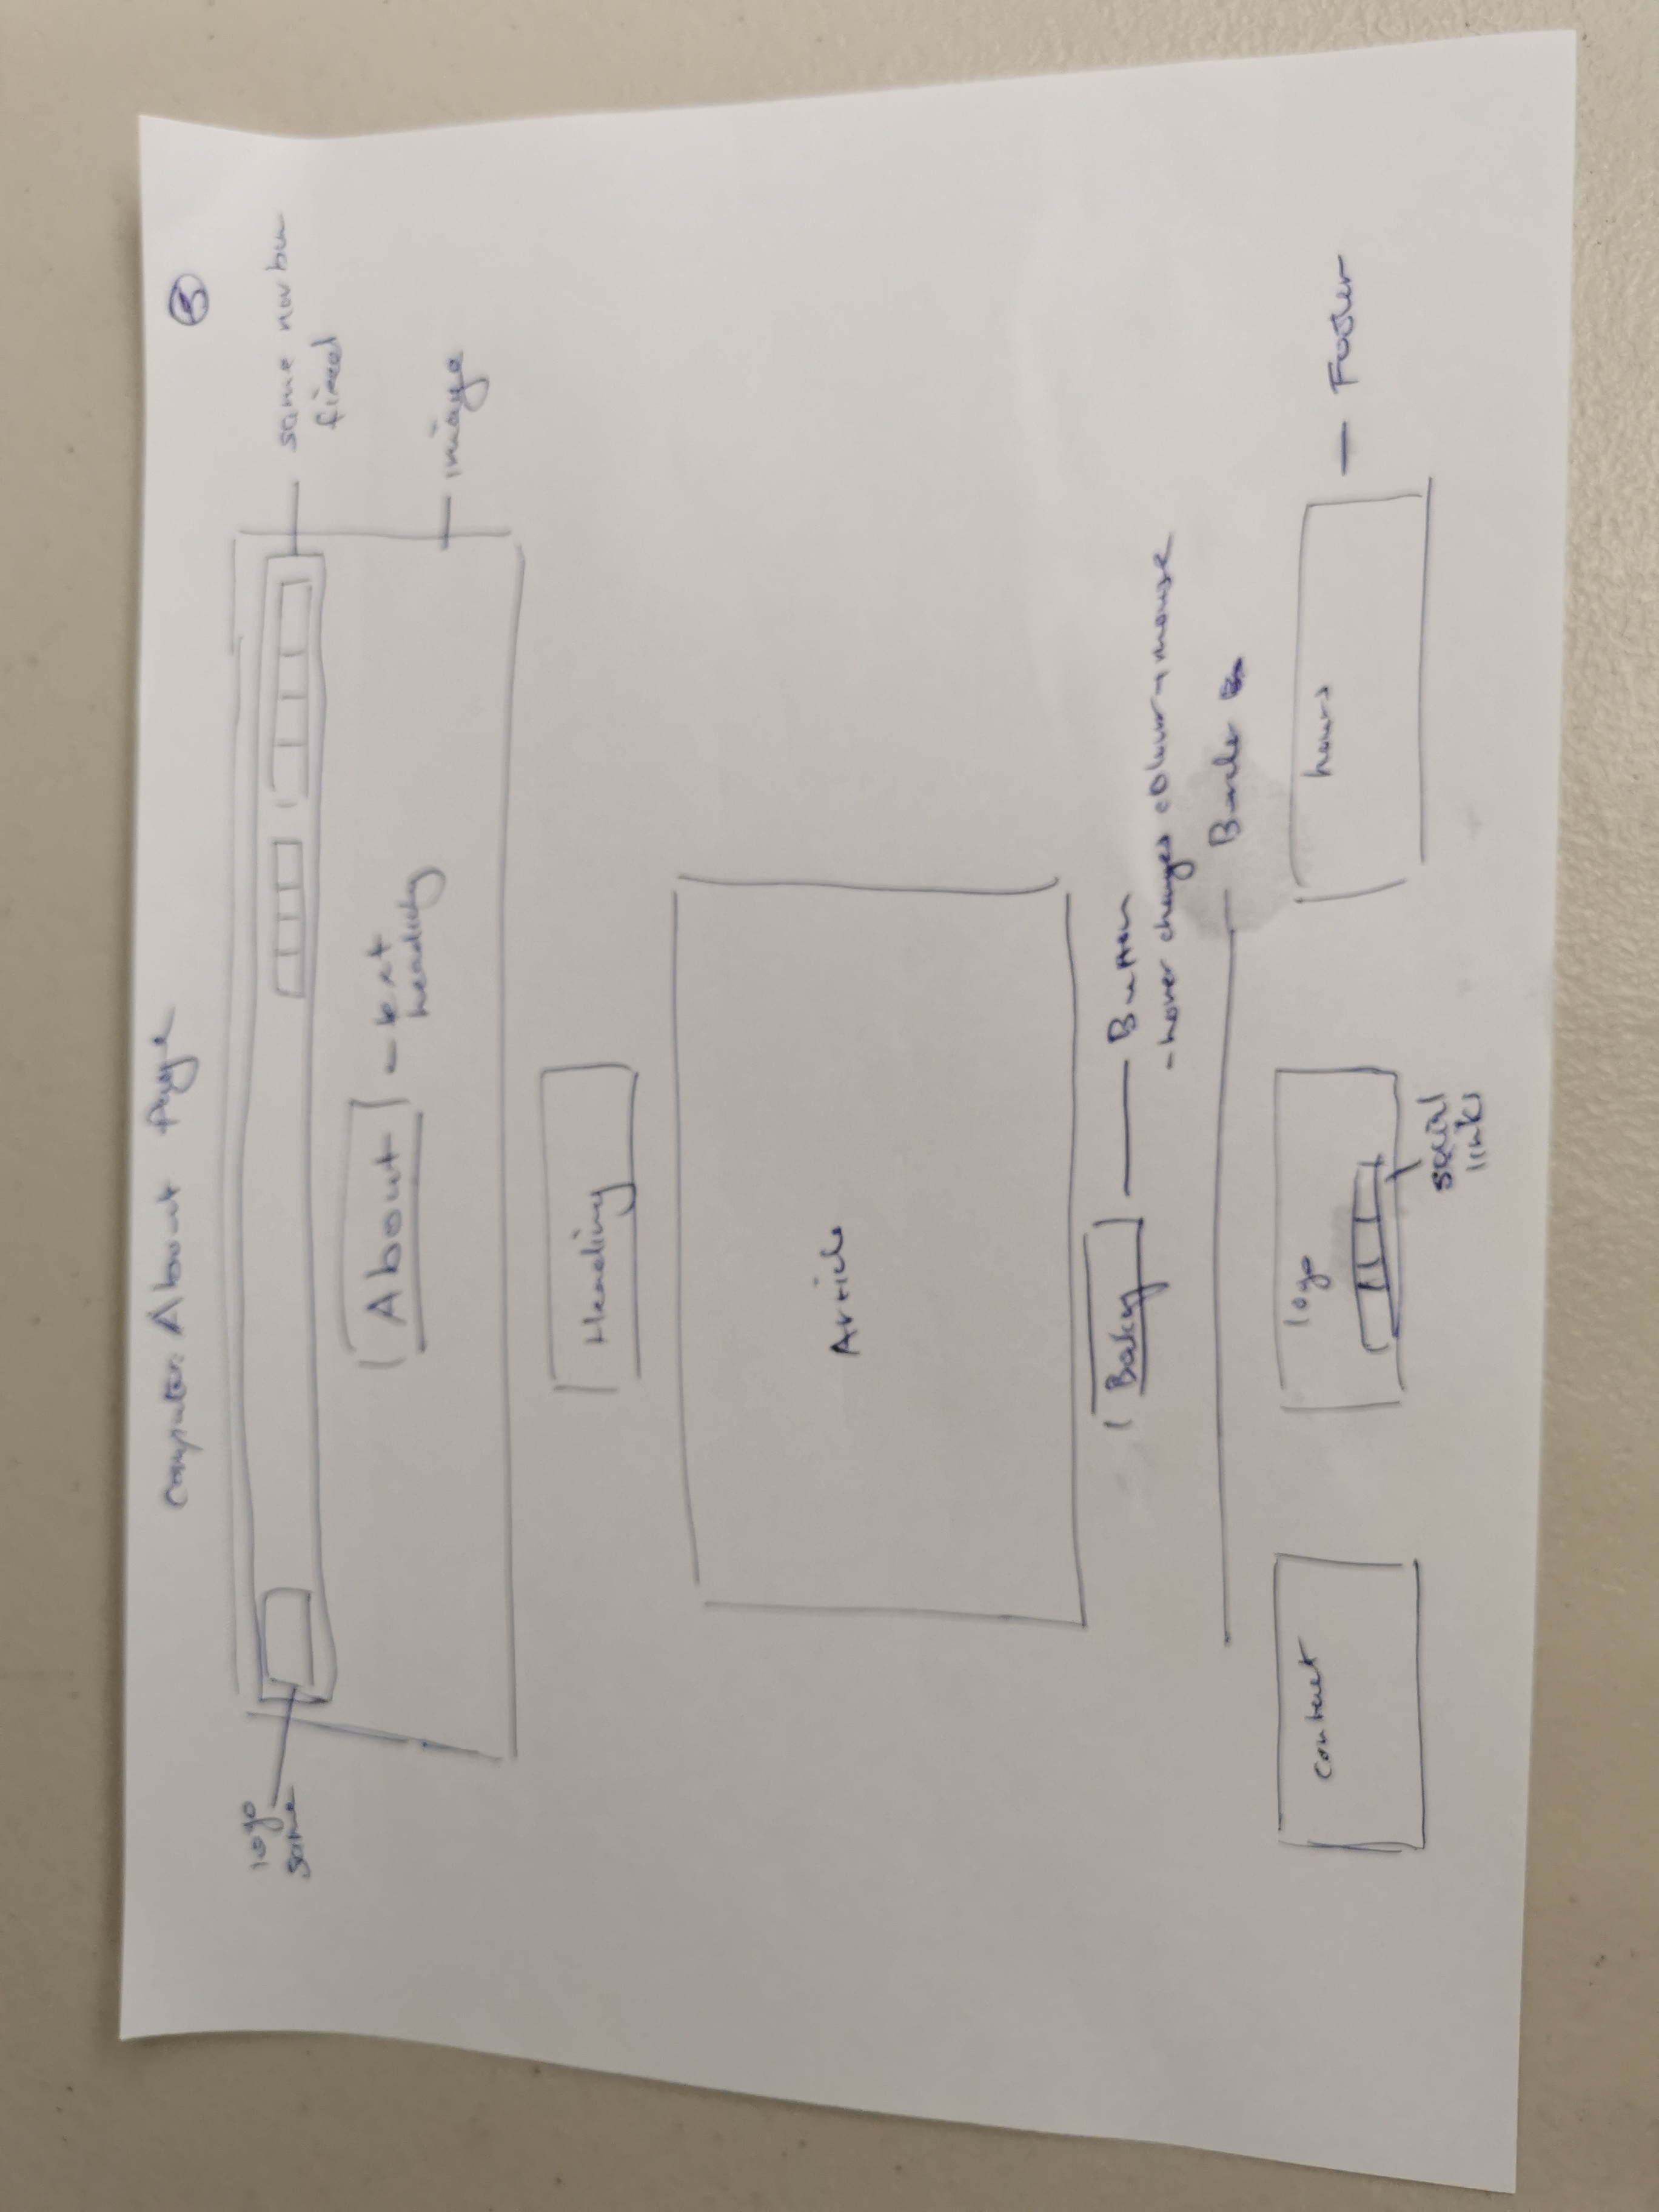 computer: About Page
5
logo
same
same nav bar
fixed
About
- text
heading
image
Heading
Article
Button
- hover changes colour + mouse
Border
contact
logo
hours
Footer
social
links